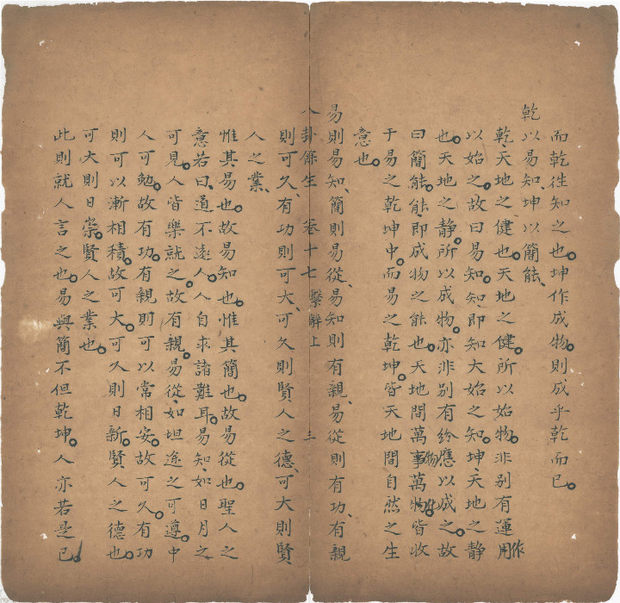 而乾徃知之也坤作成物則成乎乾而已
乾以易知坤以簡能
乾天地之健也天地之健所以始物非別有運用作
以始之故曰易知知即知大始之知坤天地之靜
也天地之靜所以成物亦非別有紛應以成之故
曰簡能能即成物之能也天地間萬事萬物皆收
于易之乾坤中而易之乾坤皆天地間自然之生
意也
易則易知簡則易從易知則有親易從則有功有親
八卦餘生 卷十七 繫辭上 三
則可久有功則可大可久則賢人之德可大則賢
人之業
惟其易也故易知也惟其簡也故易從也聖人之
意若曰道不遠人人自求諸難耳易知如日月之
可見人皆樂就之故有親易從如坦途之可遵中
人可勉故有功有親則可以常相安故可久有功
則可以漸相積故可大可久則日新賢人之德也
可大則日崇賢人之業也
此則就人言之也易與簡不但乾坤人亦若是已